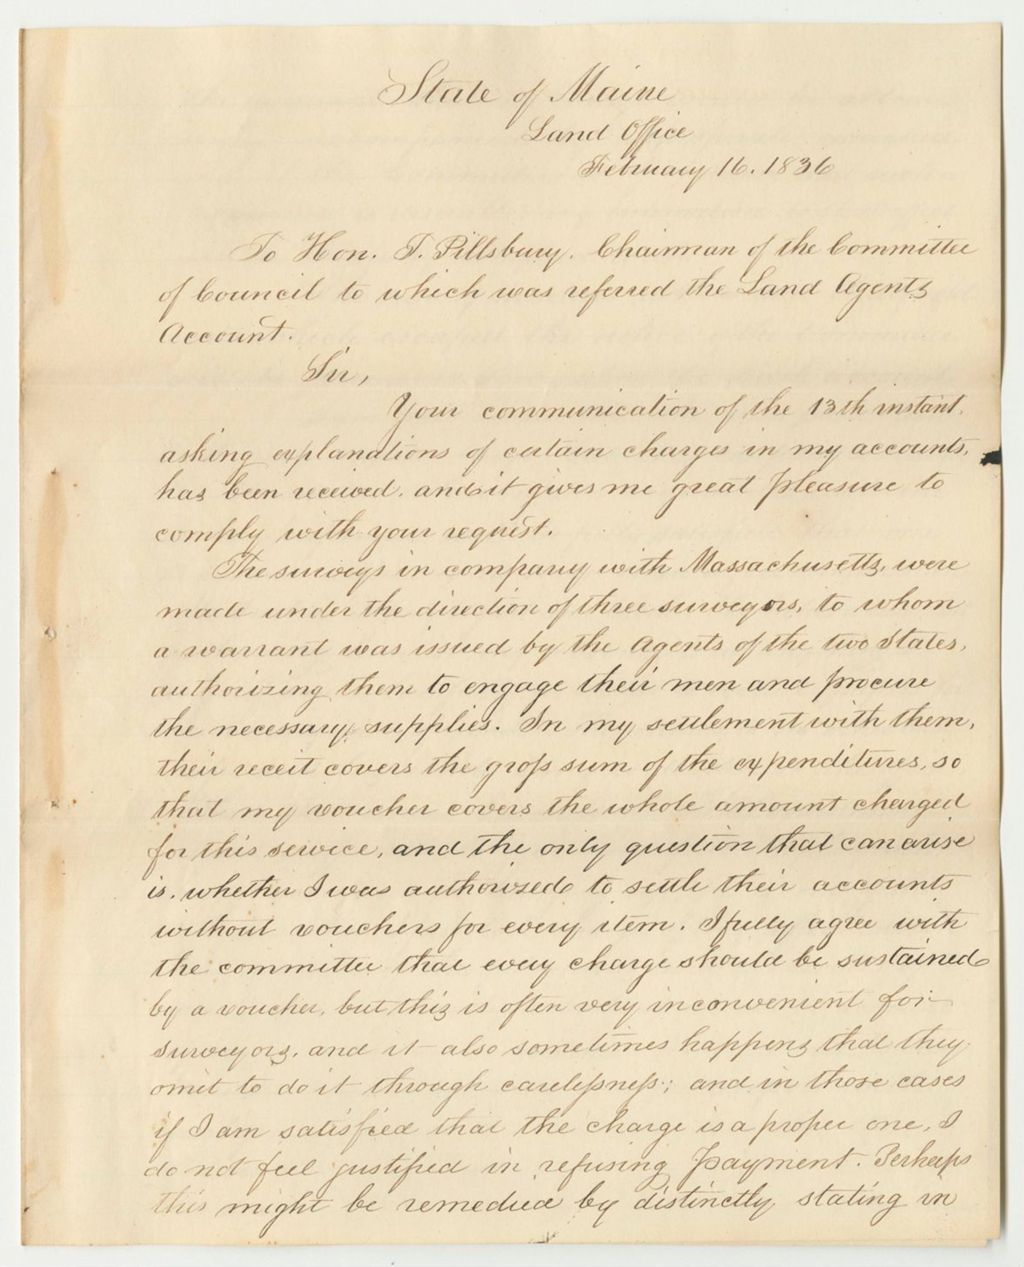 State of Maine
Land Office
February 16. 1836
To Hon. T. Pillsbury. Chairman of the Committee
of Council to which was referred the Land Agents
Account.
Sir,
Your communication of the 13th instant.
asking explanations of certain charges in my accounts,
has been received. and it gives me great pleasure to
comply with your request.
The surveys in company with Massachusetts, were
made under the direction of three surveyors, to whom
a warrant was issued by the Agents of the two States,
authorizing them to engage their men and procure
the necessary supplies. In my settlement with them,
their receit covers the gross sum of the expenditures, so
that my voucher covers the whole amount charged
for this service, and the only question that can arise
is. whether I was authorized to settle their accounts
without vouchers for every item. I fully agree with
the committee that every charge should be sustained
by a voucher, but this is often very inconvenient for
surveyors. and it also sometimes happens that they
omit to do it through carelessness; and in those cases
if I am satisfied that the charge is a proper one, I
do not feel justified in refusing payment. Perhaps
this might be remedied by distinctly stating in